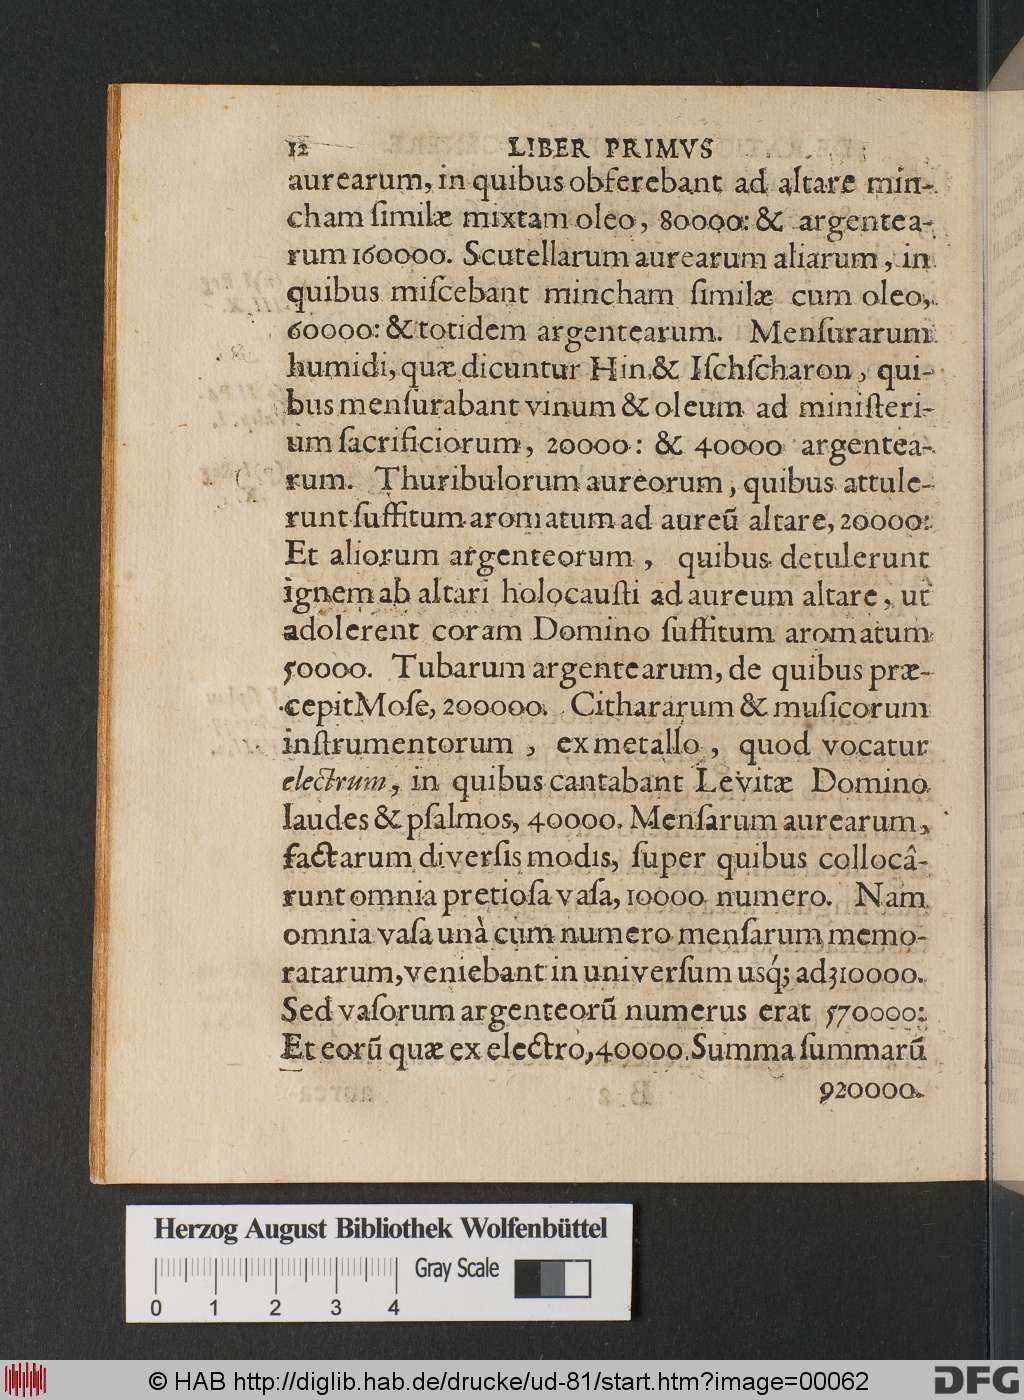 12 LIBER PRIMVS
aurearum, in quibus obferebant ad altare min-
cham ſimilæ mixtam oleo, 80000: & argentea-
rum 160000. Scutellarum aurearum aliarum, in
quibus miſcebant mincham ſimilæ cum oleo,
60000: & totidem argentearum. Menſurarum
humidi, quæ dicuntur Hin & Iſchſcharon, qui-
bus menſurabant vinum & oleum ad miniſteri-
um ſacrificiorum, 20000: & 40000 argentea-
rum. Thuribulorum aureorum, quibus attule-
runt ſuffitum aromatum ad aureũ altare, 20000:
Et aliorum argenteorum, quibus detulerunt
ignem ab altari holocauſti ad aureum altare, ut
adolerent coram Domino ſuffitum aromatum
50000. Tubarum argentearum, de quibus præ-
cepit Moſe, 200000. Cithararum & muſicorum
inſtrumentorum, ex metallo, quod vocatur
electrum, in quibus cantabant Levitæ Domino
laudes & pſalmos, 40000. Menſarum aurearum,
factarum diverſis modis, ſuper quibus collocâ-
runt omnia pretioſa vaſa, 10000 numero. Nam
omnia vaſa unà cum numero menſarum memo-
ratarum, veniebant in univerſum uſq́; ad 310000.
Sed vaſorum argenteorũ numerus erat 570000:
Et eorũ quæ ex electro, 40000. Summa ſummarũ
920000.
Herzog August Bibliothek Wolfenbüttel
Gray Scale
0 1 2 3 4
© HAB http://diglib.hab.de/drucke/ud-81/start.htm?image=00062
DFG